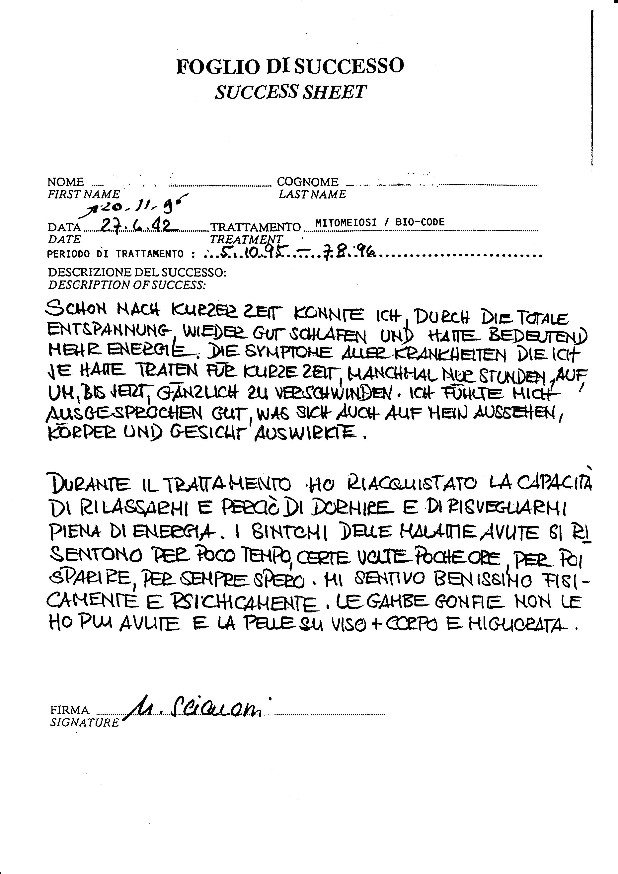 FOGLIO DI SUCCESSO
SUCCESS SHEET
NOME COGNOME
FIRST NAME LAST NAME
20.11.95
DATA 27.6.42 TRATTAMENTO MITOMEIOSI / BIO-CODE
DATE TREATMENT
PERIODO DI TRATTAMENTO : 5.10.95 — 7.8.96
DESCRIZIONE DEL SUCCESSO:
DESCRIPTION OF SUCCESS:
SCHON NACH KURZER ZEIT KONNTE ICH, DURCH DIE TOTALE
ENTSPANNUNG, WIEDER GUT SCHLAFEN UND HATTE BEDEUTEND
MEHR ENERGIE. DIE SYMPTOME ALLER KRANKHEITEN DIE ICH
JE HATTE TRATEN FÜR KURZE ZEIT, MANCHMAL NUR STUNDEN, AUF
UM, BIS JETZT, GÄNZLICH ZU VERSCHWINDEN. ICH FÜHLTE MICH
AUSGESPROCHEN GUT, WAS SICH AUCH AUF MEIN AUSSEHEN,
KÖRPER UND GESICHT AUSWIRKTE.
DURANTE IL TRATTAMENTO HO RIACQUISTATO LA CAPACITÀ
DI RILASSARMI E PERCIÒ DI DORMIRE E DI RISVEGLIARMI
PIENA DI ENERGIA. I SINTOMI DELLE MALATTIE AVUTE SI RI
SENTONO PER POCO TEMPO, CERTE VOLTE POCHE ORE, PER POI
SPARIRE, PER SEMPRE SPERO. MI SENTIVO BENISSIMO FISI-
CAMENTE E PSICHICAMENTE. LE GAMBE GONFIE NON LE
HO PIU AVUTE E LA PELLE SU VISO + CORPO E MIGLIORATA.
FIRMA
SIGNATURE